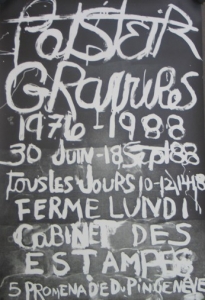 ROLF ISELI
GRAVURES
1976-1988
30 JUIN-18 Sept 88
TOUS LES JOURS 10-12 14-18
FERME LUNDI
CABINET DES
ESTAMPES
5 PROMENADE DU PIN GENEVE